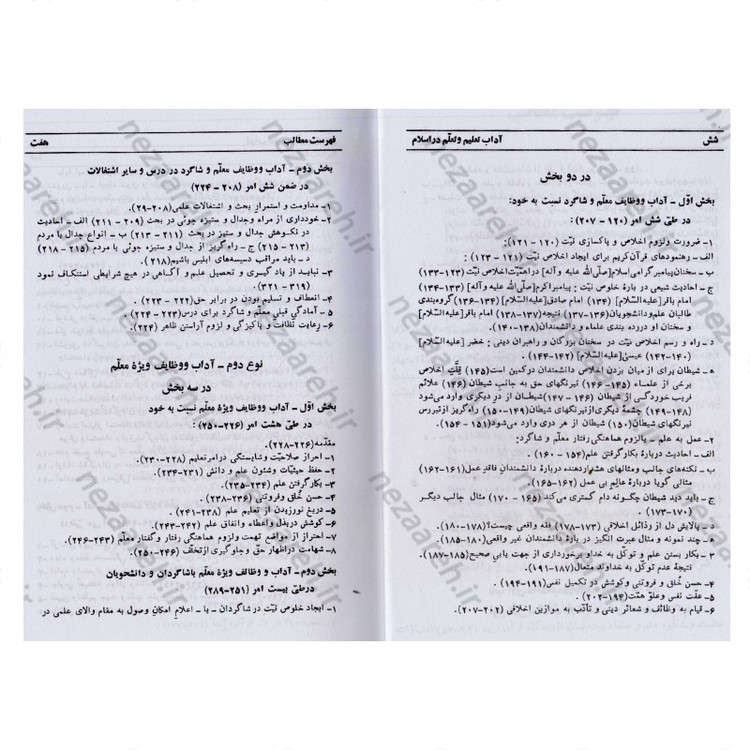 شش
آداب تعلیم و تعلّم در اسلام
در دو بخش
بخش اوّل ـ آداب ووظایف معلّم و شاگرد نسبت به خود:
در طیّ شش امر (۱۲۰ – ۲۰۷) :
۱ـ ضرورت ولزوم اخلاص و پاکسازی نیّت (۱۲۰ – ۱۲۱):
الف ـ رهنمودهای قرآن‌کریم برای ایجاد اخلاص نیّت (۱۲۱ – ۱۲۳) :
ب ـ سخنان‌پیامبرگرامی‌اسلام[صلّی الله علیه و آله] دراهمّیّت اخلاص نیّت (۱۲۳–۱۳۳)
ج ـ احادیث شیعی در بارهٔ خلوص نیّت : پیامبراکرم[صلّی الله علیه و آله] (۱۳۳–۱۳۴)
امام باقر[علیه السّلام] (۱۳۴) امام صادق[علیه السّلام] (۱۳۴–۱۳۶)گروه‌بندی
طالبان علم‌ودانشجویان(۱۳۶–۱۳۷) نتیجه(۱۳۷–۱۳۸) امام باقر[علیه السّلام]
و سخنان او درباره بندی علماء و دانشمندان(۱۳۸–۱۴۰)
د ـ راه و رسم اخلاص نیّت در سخنان بزرگان و راهبران دینی : خضر [علیه السّلام]
(۱۴۰–۱۴۲) عیسیٰ[علیه السّلام] (۱۴۲–۱۴۴)
ه ـ شیطان برای از میان بردن اخلاص دانشمندان درکمین است (۱۴۵) قِلّتِ اخلاص
برخی از علماء (۱۴۵–۱۴۶) نیرنگهای حق به جانب شیطان (۱۴۶) علائم
فریب خوردگی از شیطان (۱۴۶ – ۱۴۷)شیطان از در دیگری وارد می‌شود
(۱۴۸–۱۴۹) چشمهٔ دیگری‌ازنیرنگهای شیطان(۱۴۹–۱۵۰) راه‌گریز از تیررس
نیرنگهای شیطان(۱۵۰) شیطان از هر دری وارد می‌شود(۱۵۱–۱۵۴) .
۲ـ عمل به علم ـ یالزوم هماهنگی رفتار معلّم و شاگرد:
الف ـ احادیث دربارهٔ بکارگرفتن علم(۱۵۴ – ۱۶۰) .
ب ـ نکته‌های جالب ومثالهای هشداردهنده دربارهٔ دانشمندان فاقد عمل(۱۶۱–۱۶۲)
مثالی گویا دربارهٔ عالم بی عمل (۱۶۲–۱۶۵)
ج ـ باید دید شیطان چگونه دام گستری می‌کند (۱۶۵ – ۱۷۰) مثال جالب دیگر
(۱۷۰–۱۷۳) .
د ـ پالایش دل از رذائل اخلاقی (۱۷۳–۱۷۸) فقه واقعی چیست؟(۱۷۸–۱۸۰).
ه ـ چند نمونه و مثال عبرت انگیز در بارهٔ دانشمندان غیر واقعی(۱۸۰–۱۸۵)
۳ ـ بکار بستن علم و توکّل به خداو برخورداری از جهت یابی صحیح(۱۸۵–۱۸۷).
نتیجهٔ عدم توکّل به خداوند متعال(۱۸۷–۱۹۱)
۴ـ حسن خُلق و فروتنی وکوشش در تکمیل نفس(۱۹۱–۱۹۴) .
۵ـ عفّت نفس وعلوّ همّت(۱۹۴–۲۰۲) .
۶ـ قیام به وظائف و شعائر دینی و تأدّب به موازین اخلاقی (۲۰۲–۲۰۷).
فهرست مطالب
هفت
بخش دوم ـ آداب ووظایف معلّم و شاگرد در درس و سایر اشتغالات
در ضمن شش امر (۲۰۸ – ۲۲۴)
۱ـ مداومت و استمرار بحث و اشتغالات علمی(۲۰۸–۲۹).
۲ـ خودداری از مراء وجدال و ستیزه جوئی در بحث (۲۰۹ – ۲۱۱) الف ـ احادیث
در نکوهش جدال و ستیز در بحث (۲۱۱ – ۲۱۳) ب ـ انواع جدال با مردم
(۲۱۳ – ۲۱۵) ج ـ راه‌گریز از جدال و ستیزه جوئی با مردم (۲۱۵ – ۲۱۸)
د ـ باید مراقب دسیسه‌های ابلیس باشیم(۲۱۸).
۳ـ نباید از یاد گیری و تحصیل علم و آگاهی در هیچ شرایطی استنکاف نمود
(۳۱۹ – ۳۲۱).
۴ـ انعطاف و تسلیم بودن در برابر حق(۲۲۲ – ۲۲۳) .
۵ـ آمادگی قبلیِ معلّم و شاگرد برای درس(۲۲۳ – ۲۲۴) .
۶ـ رعایت نظافت و پاکیزگی و لزوم آراستن ظاهر (۲۲۴).
نوع دوم ـ آداب ووظایف ویژهٔ معلّم
در سه بخش
بخش اوّل ـ آداب ووظایف ویژهٔ معلّم نسبت به خود
در طیّ هشت امر (۲۲۶–۲۵۰) :
مقدّمه(۲۲۶–۲۲۸).
۱ـ احراز صلاحیّت وشایستگی درامرتعلیم (۲۲۸–۲۳۰).
۲ـ حفظ حیثیّات وشئون علم و دانش (۲۳۱–۲۳۴).
۳ـ بکارگرفتن علم (۲۳۴–۲۳۵).
۴ـ حسن خُلق وفروتنی (۲۳۶–۲۳۸).
۵ـ دریغ نورزیدن از تعلیم علم (۲۳۸–۲۴۱).
۶ـ کوشش دربذل واعطاء و انفاق علم (۲۴۲–۲۴۳)
۷ـ احتراز از مواضع تهمت ولزوم هماهنگی رفتار وگفتار معلّم(۲۴۳–۲۴۶).
۸ـ شهامت دراظهار حق و جلوگیری ازتخلّف (۲۴۶–۲۵۰).
بخش دوم ـ آداب و وظائف ویژهٔ معلّم باشاگردان و دانشجویان
درطیّ بیست امر (۲۵۱–۲۸۹)
۱ـ ایجاد خلوص نیّت در شاگردان ـ یا ـ اعلام امکان وصول به مقام والای علمی در
nezaareh.ir